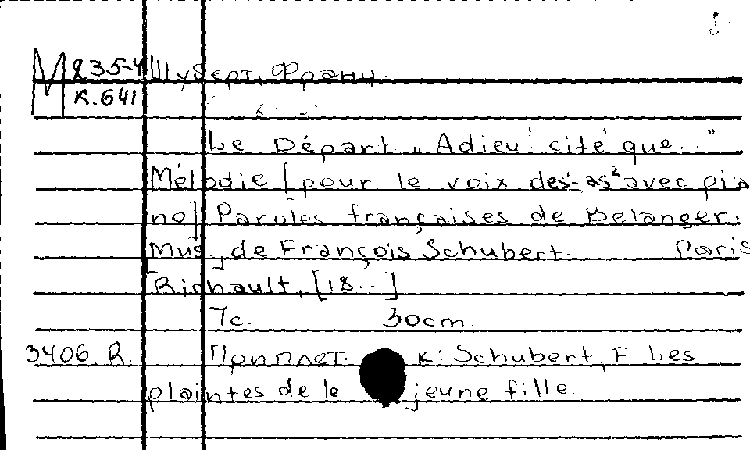 М 235-4 Шуберт, Франц.
К.641
Le Départ „Adieu cité que.."
Mélodie [pour le voix des¹-as² avec pia
no] Paroles françaises de Belanger.
Mus, de François Schubert. Paris
Richault, [18..]
7с. 30cm
3406 R. Приплет. к: Schubert, F Les
plaintes de le jeune fille